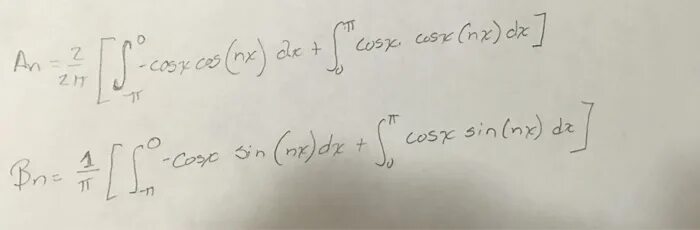 An = 2/2π [ ∫_-π^0 -cosx cos(nx) dx + ∫_0^π cosx. cosx(nx) dx ]
Bn = 1/π [ ∫_-π^0 -cosx sin(nx) dx + ∫_0^π cosx sin(nx) dx ]